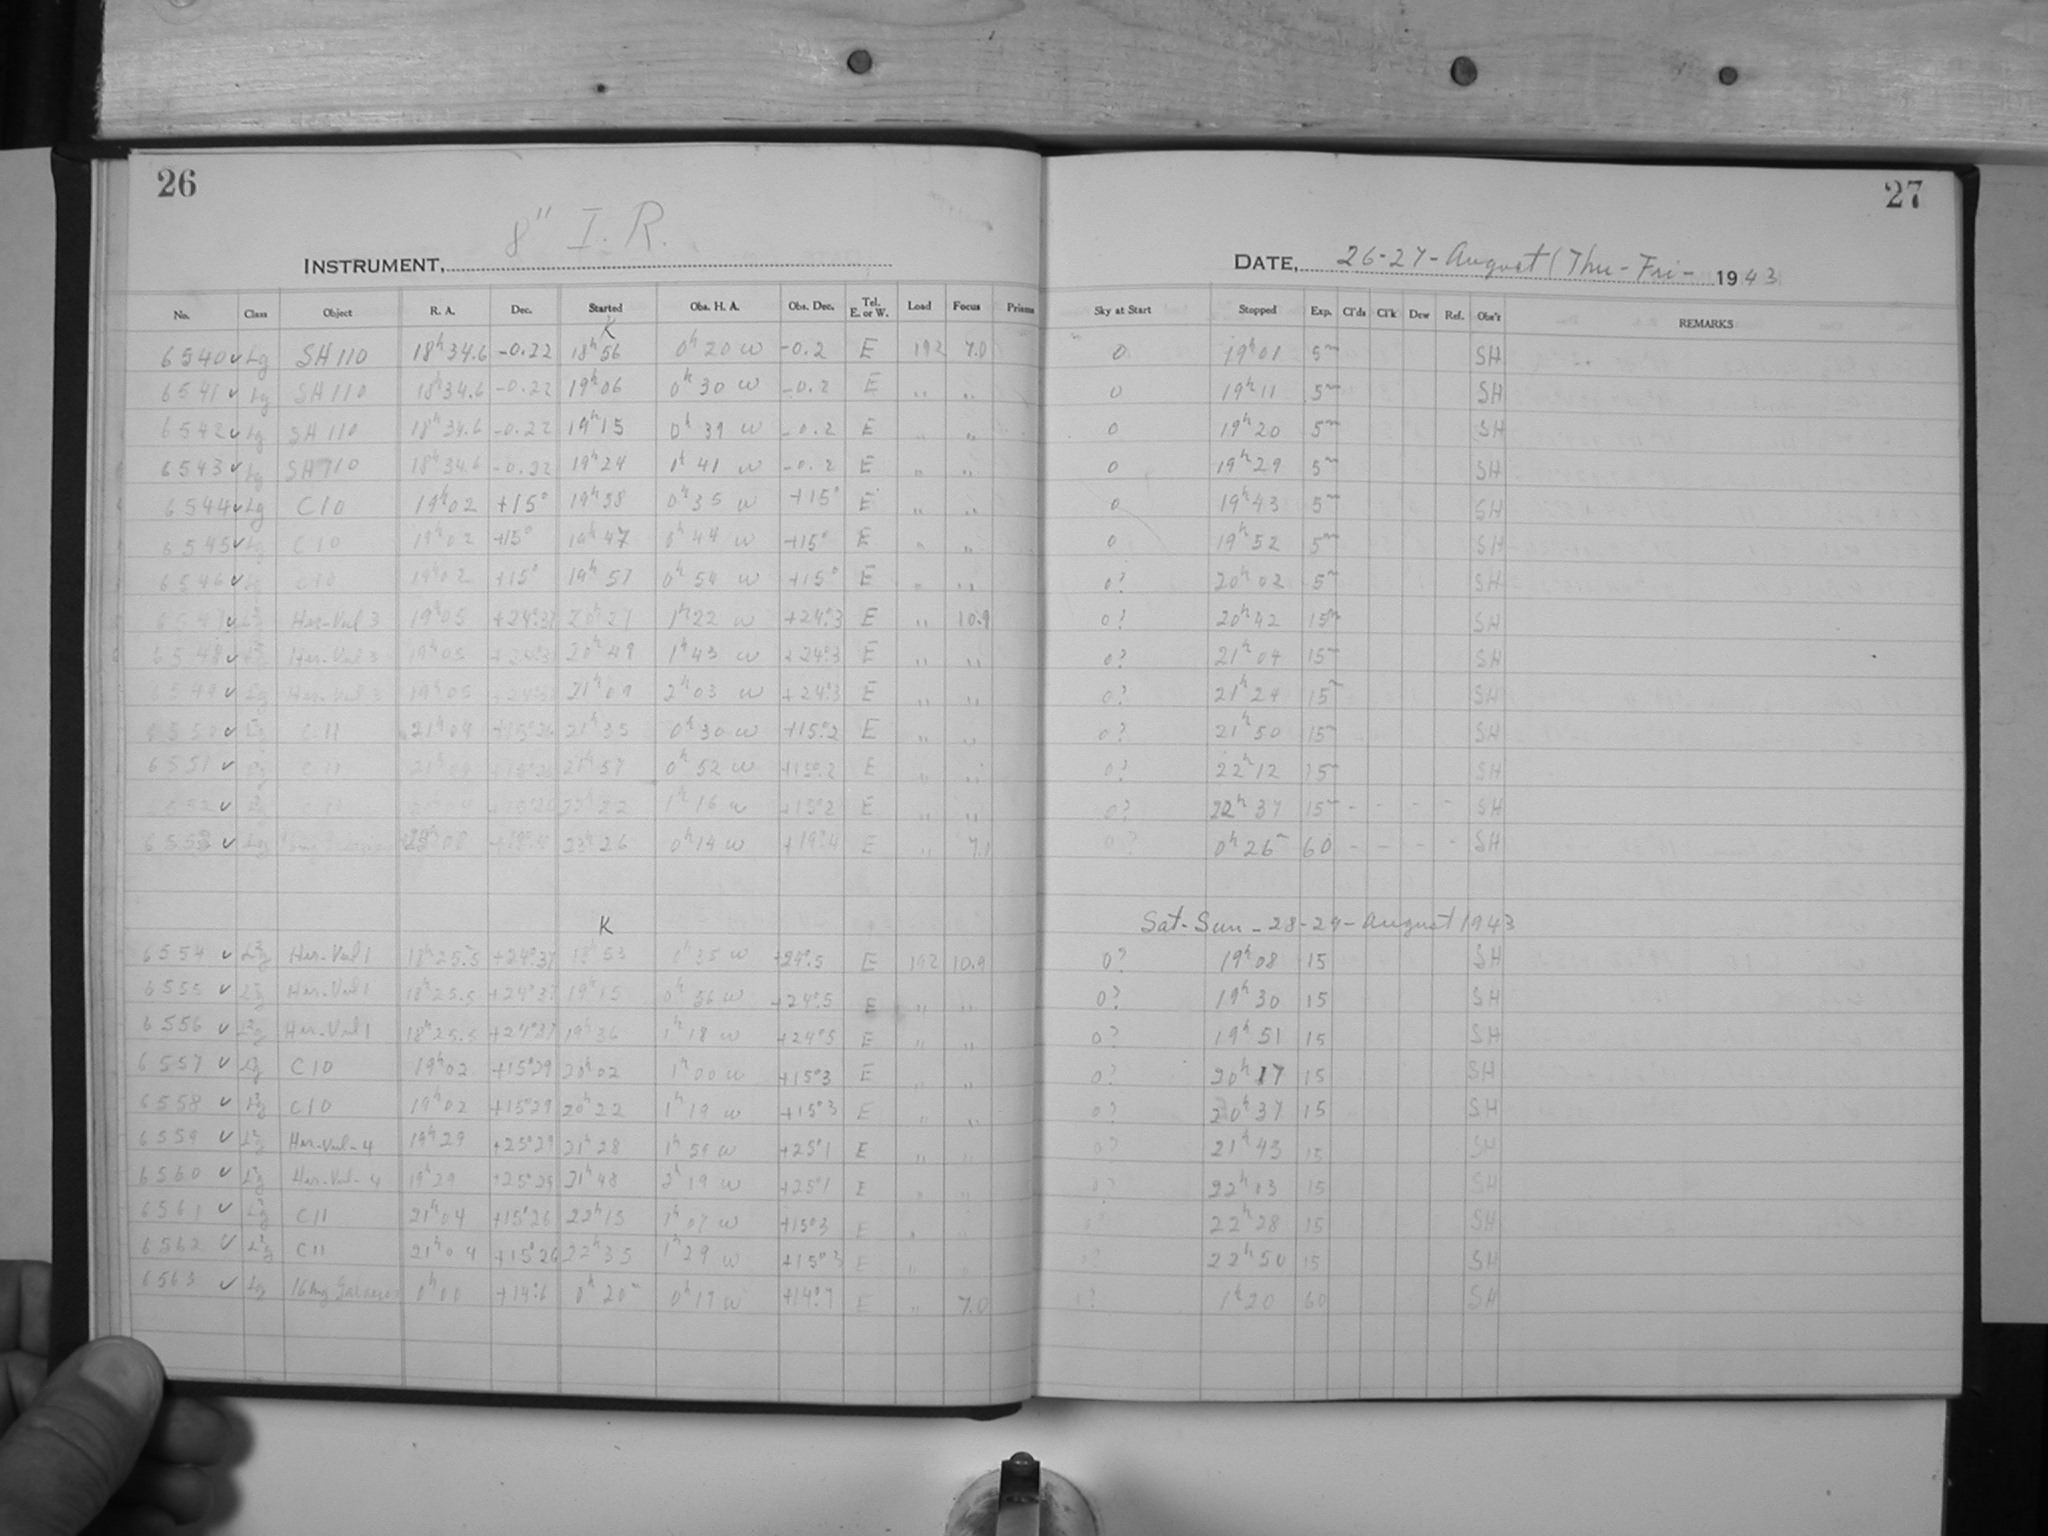 26
27
INSTRUMENT, 8" I. R.
DATE, 26-27-August (Thu-Fri- 1943
No. Class Object R. A. Dec. Started Obs. H. A. Obs. Dec. Tel. E. or W. Load Focus Prisms Sky at Start Stopped Exp. Cl'ds Cl'k Dew Ref. Obs'r REMARKS
K
6540 ✓ Lg SH110 18h34.6 -0.22 18h56 0h20 W -0.2 E 192 7.0 0 19h01 5m SH
6541 ✓ Lg SH110 18h34.6 -0.22 19h06 0h30 W -0.2 E " " 0 19h11 5m SH
6542 ✓ Lg SH110 18h34.6 -0.22 19h15 0h39 W -0.2 E " " 0 19h20 5m SH
6543 ✓ Lg SH110 18h34.6 -0.22 19h24 1h41 W -0.2 E " " 0 19h29 5m SH
6544 ✓ Lg C10 19h02 +15° 19h38 0h35 W +15° E " " 0 19h43 5m SH
6545 ✓ Lg C10 19h02 +15° 19h47 0h44 W +15° E " " 0 19h52 5m SH
6546 ✓ Lg C10 19h02 +15° 19h57 0h54 W +15° E " " 0? 20h02 5m SH
6547 ✓ Her-Vul 3 19h05 20h27 1h22 W +24°.3 E " 10.9 0? 20h42 15m SH
6548 ✓ Her-Vul 3 19h05 20h49 1h43 W +24°.3 E " " 0? 21h04 15m SH
6549 ✓ Her-Vul 3 19h05 21h09 2h03 W +24°.3 E " " 0? 21h24 15m SH
6550 ✓ C11 21h04 +15°26 21h35 0h30 W +15°.2 E " " 0? 21h50 15m SH
6551 ✓ C11 21h04 21h57 0h52 W +15°.2 E " " 0? 22h12 15m SH
6552 ✓ C11 22h22 1h16 W +15°.2 E " " 0? 22h37 15m - - - - SH
6553 ✓ Lg 23h26 0h14 W +19°.4 E " 7.1 0? 0h26m 60 - - - - SH
Sat-Sun-28-29-August 1943
K
6554 ✓ Her-Vul 1 18h25.5 +24°37 18h53 0h35 W +24°.5 E 192 10.9 0? 19h08 15 SH
6555 ✓ Her-Vul 1 18h25.5 +24°37 19h15 0h56 W +24°.5 E " " 0? 19h30 15 SH
6556 ✓ Her-Vul 1 18h25.5 +24°37 19h36 1h18 W +24°.5 E " " 0? 19h51 15 SH
6557 ✓ C10 19h02 +15°29 20h02 1h00 W +15°.3 E " " 0? 20h17 15 SH
6558 ✓ C10 19h02 +15°29 20h22 1h19 W +15°.3 E " " 0? 20h37 15 SH
6559 ✓ Her-Vul-4 19h29 +25°29 21h28 1h59 W +25°.1 E " " 0? 21h43 15 SH
6560 ✓ Her-Vul-4 19h29 +25°29 21h48 2h19 W +25°.1 E " " 0? 22h03 15 SH
6561 ✓ C11 21h04 +15°26 22h13 1h07 W +15°.3 E " 22h28 15 SH
6562 ✓ C11 21h04 +15°26 22h35 1h29 W +15°.3 E " 22h50 15 SH
6563 ✓ Lg 0h00 +14°.6 0h20m 0h17 W +14°.7 E " 7.0 1h20 60 SH